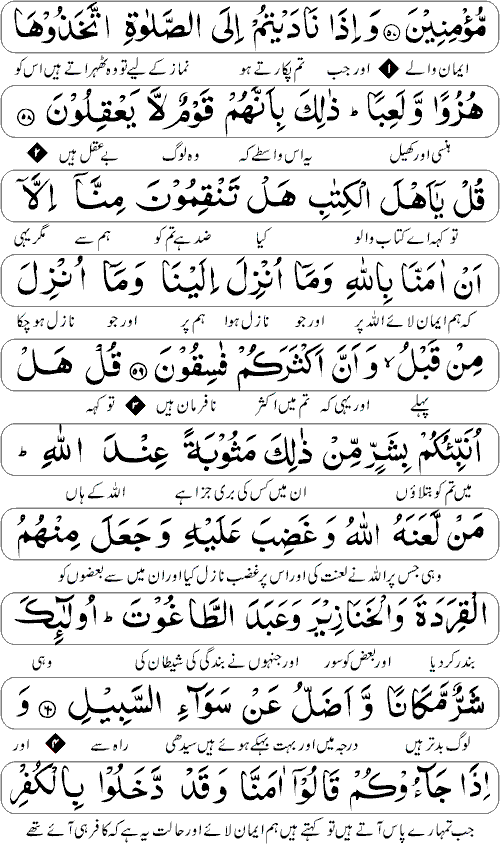 مُّؤْمِنِیْنَ ﴿۵۷﴾ وَ اِذَا نَادَیْتُمْ اِلَی الصَّلٰوةِ اتَّخَذُوْهَا
ایمان والے ۱ اور جب تم پکارتے ہو نماز کے لیے تو وہ ٹھہراتے ہیں اس کو
هُزُوًا وَّ لَعِبًا ؕ ذٰلِكَ بِاَنَّهُمْ قَوْمٌ لَّا یَعْقِلُوْنَ ﴿۵۸﴾
ہنسی اور کھیل یہ اس واسطے کہ وہ لوگ بے عقل ہیں ۲
قُلْ یٰۤاَهْلَ الْكِتٰبِ هَلْ تَنْقِمُوْنَ مِنَّاۤ اِلَّاۤ
تو کہہ اے کتاب والو کیا ضد ہے تم کو ہم سے مگر یہی
اَنْ اٰمَنَّا بِاللّٰهِ وَ مَاۤ اُنْزِلَ اِلَیْنَا وَ مَاۤ اُنْزِلَ
کہ ہم ایمان لائے اللہ پر اور جو نازل ہوا ہم پر اور جو نازل ہو چکا
مِنْ قَبْلُ ۙ وَ اَنَّ اَكْثَرَكُمْ فٰسِقُوْنَ ﴿۵۹﴾ قُلْ هَلْ
پہلے اور یہی کہ تم میں اکثر نافرمان ہیں ۳ تو کہہ
اُنَبِّئُكُمْ بِشَرٍّ مِّنْ ذٰلِكَ مَثُوْبَةً عِنْدَ اللّٰهِ ؕ
میں تم کو بتلاؤں ان میں کس کی بری جزا ہے اللہ کے ہاں
مَنْ لَّعَنَهُ اللّٰهُ وَ غَضِبَ عَلَیْهِ وَ جَعَلَ مِنْهُمُ
وہی جس پر اللہ نے لعنت کی اور اس پر غضب نازل کیا اور ان میں سے بعضوں کو
الْقِرَدَةَ وَ الْخَنَازِیْرَ وَ عَبَدَ الطَّاغُوْتَ ؕ اُولٰٓئِكَ
بندر کر دیا اور بعض کو سور اور جنہوں نے بندگی کی شیطان کی وہی
شَرٌّ مَّكَانًا وَّ اَضَلُّ عَنْ سَوَآءِ السَّبِیْلِ ﴿۶۰﴾ وَ
لوگ بدتر ہیں درجہ میں اور بہت بہکے ہوئے ہیں سیدھی راہ سے ۴ اور
اِذَا جَآءُوْكُمْ قَالُوْۤا اٰمَنَّا وَ قَدْ دَّخَلُوْا بِالْكُفْرِ
جب تمہارے پاس آتے ہیں تو کہتے ہیں ہم ایمان لائے اور حالت یہ ہے کہ کافر ہی آئے تھے